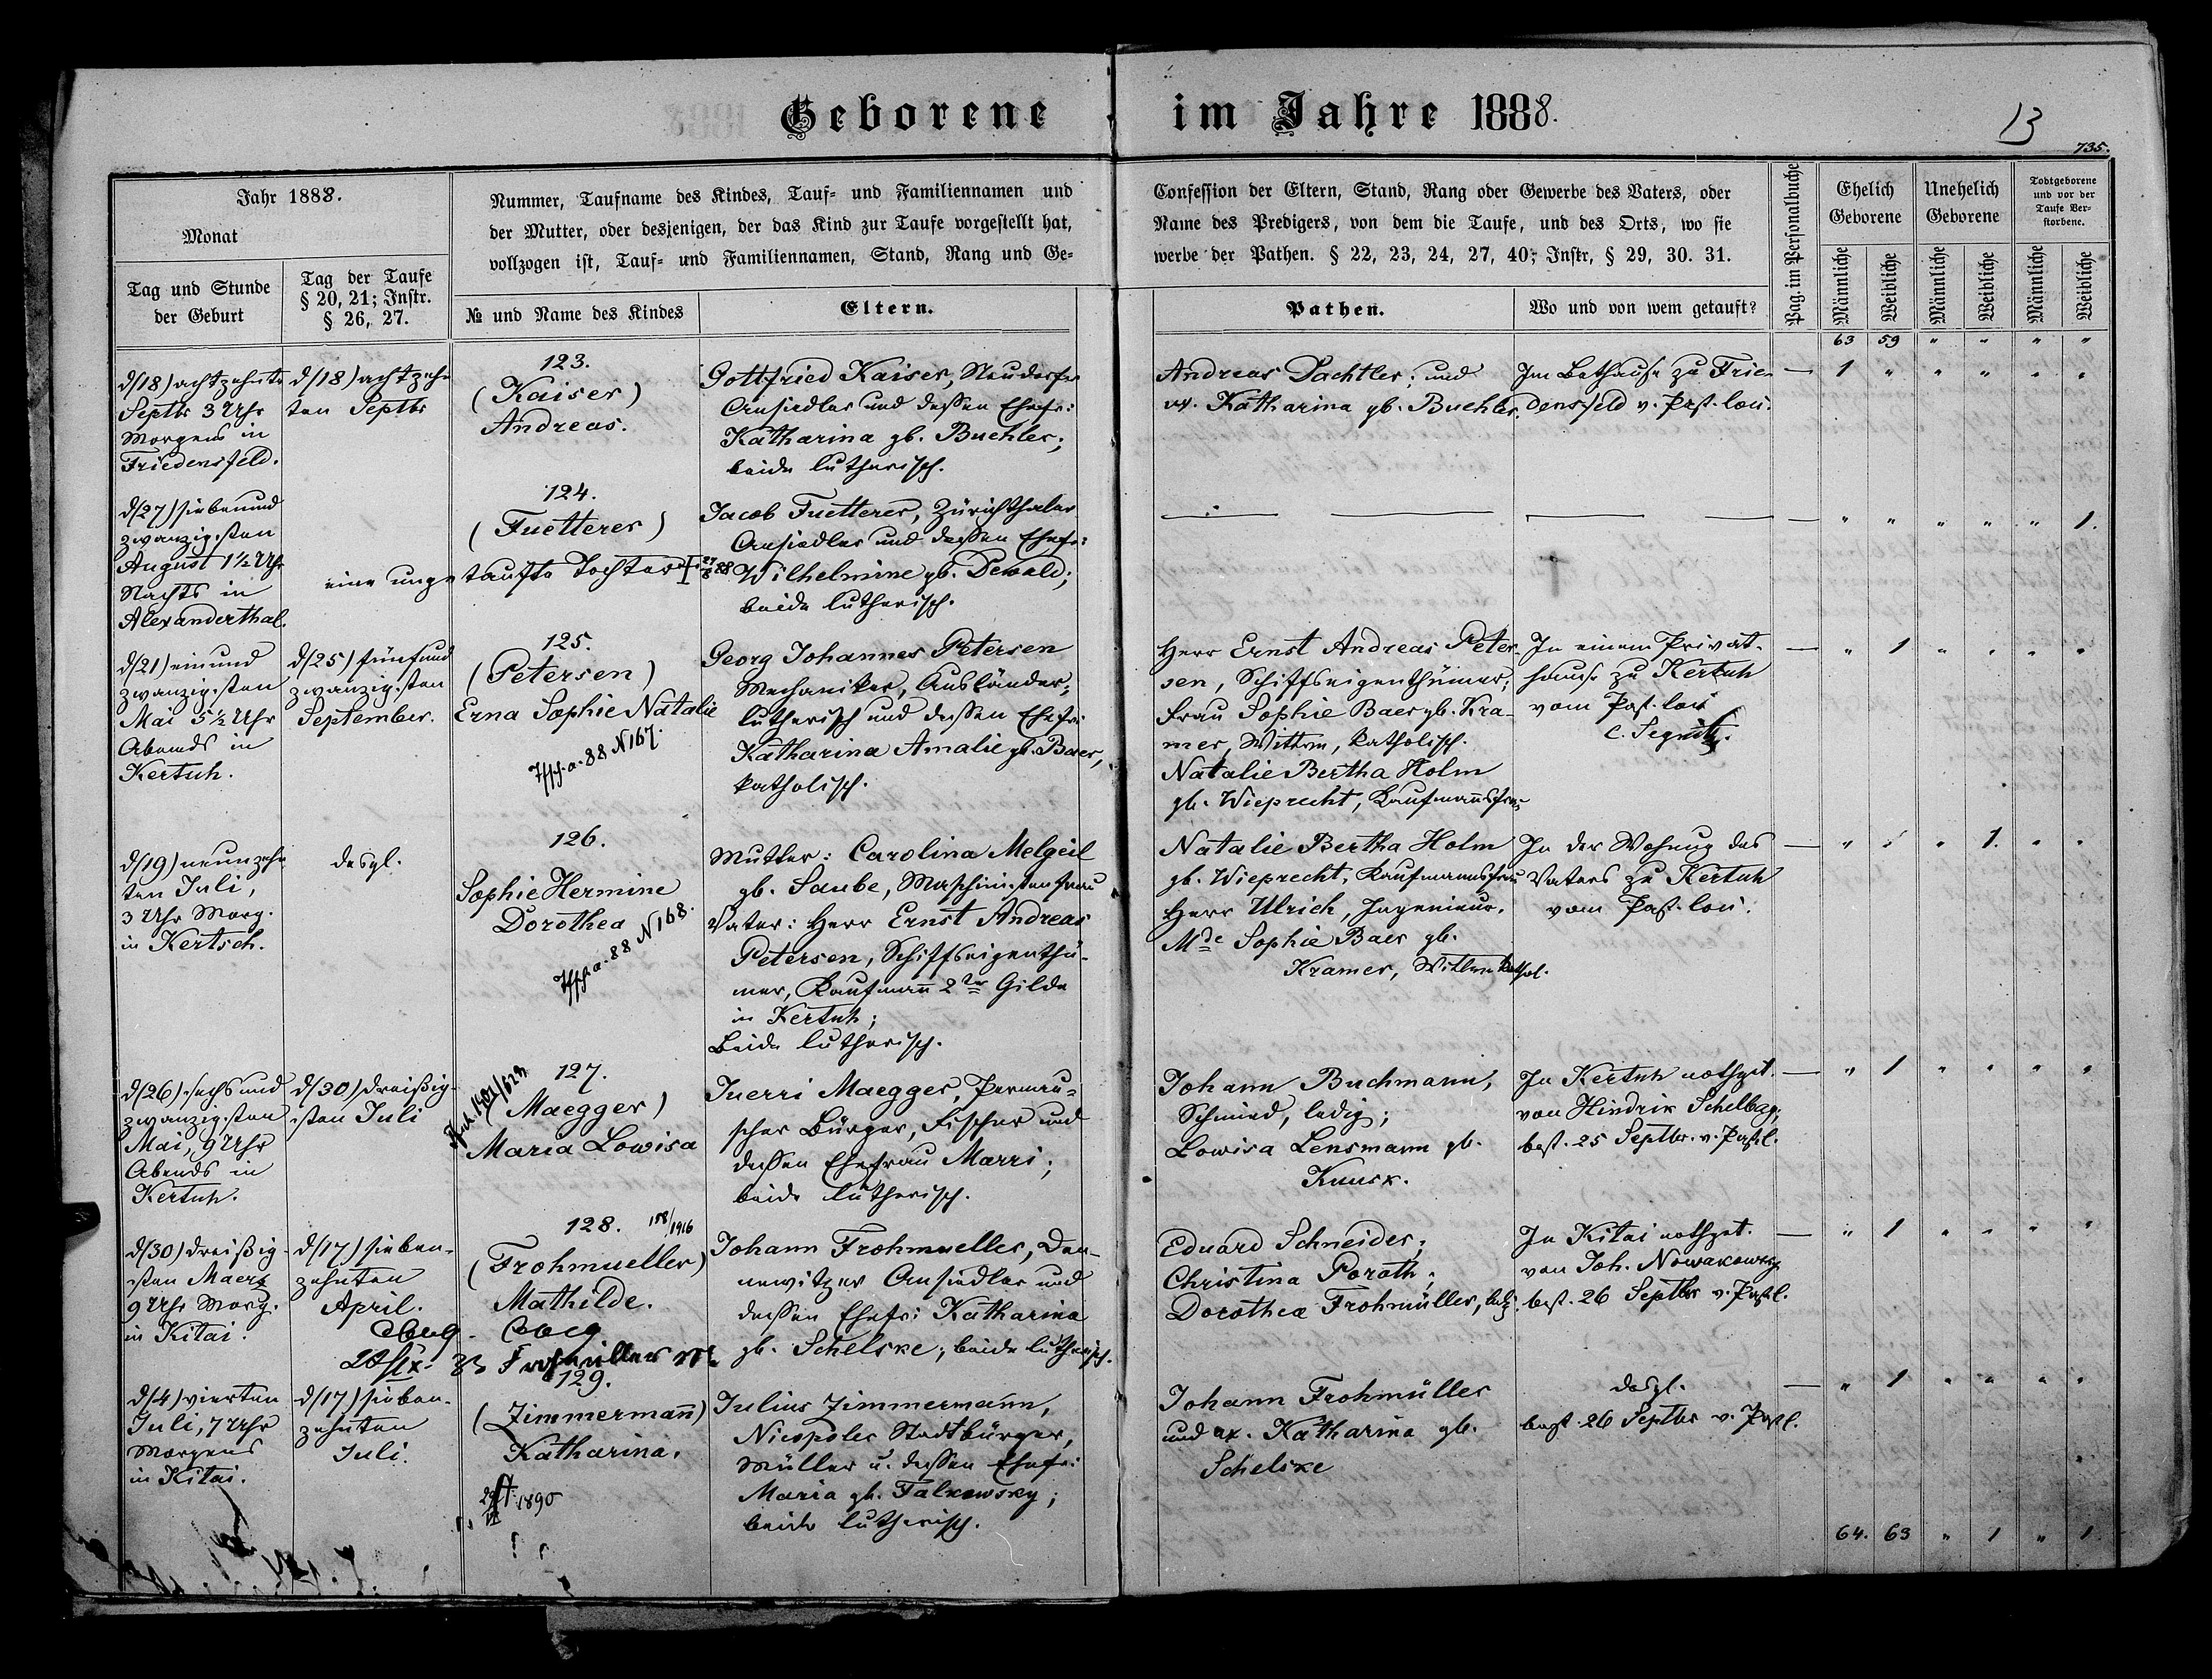 Geborene im Jahre 1888.
13
735.
Jahr 1888.
Monat
Tag und Stunde
der Geburt
Tag der Taufe
§ 20, 21; Instr.
§ 26, 27.
Nummer, Taufname des Kindes, Tauf- und Familiennamen und
der Mutter, oder desjenigen, der das Kind zur Taufe vorgestellt hat,
vollzogen ist, Tauf- und Familiennamen, Stand, Rang und Ge-
№ und Name des Kindes
Eltern.
Confession der Eltern, Stand, Rang oder Gewerbe des Vaters, oder
Name des Predigers, von dem die Taufe, und des Orts, wo sie
werbe der Pathen. § 22, 23, 24, 27, 40; Instr, § 29, 30. 31.
Pathen.
Wo und von wem getauft?
Pag. im Personalbuche
Ehelich
Geborene
Unehelich
Geborene
Todtgeborene
und vor der
Taufe Ver-
storbene.
Männliche
Weibliche
Männliche
Weibliche
Männliche
Weibliche
63 59 " " " "
d/18) achtzehnte
Septbr 3 Uhr
Morgens in
Friedensfeld.
d/18) achtzehn
ten Septbr
123.
(Kaiser)
Andreas.
Gottfried Kaiser, Neudorfer
Ansiedler und dessen Ehefr:
Katharina gb. Buehler;
beide lutherisch.
Andreas Dachtler; und
ux. Katharina gb. Buehler.
Im Bethause zu Frie-
densfeld v. Past. loci.
— 1 " " " " "
d/27) siebenund
zwanzigsten
August 1½ Uhr
Nachts in
Alexanderthal.
124.
(Fuetterer)
eine ungetaufte Tochter † 27/8 88
Jacob Fuetterer, Zürichthaler
Ansiedler und dessen Ehefr:
Wilhelmine gb. Dewald;
beide lutherisch.
— " " " " " 1.
d/21) einund
zwanzigsten
Mai 5½ Uhr
Abends in
Kertsch.
d/25) fünfund
zwanzigsten
September.
125.
(Petersen)
Erna Sophie Natalie
a. 88 N 167.
Georg Johannes Petersen
Mechaniker, Ausländer,
lutherisch und dessen Ehefr:
Katharina Amalie gb. Baer,
katholisch.
Herr Ernst Andreas Peter-
sen, Schiffseigenthümer;
Frau Sophie Baer gb. Kra-
mer, Wittwe, katholisch.
Natalie Bertha Holm
gb. Wieprecht, Kaufmannsfrau
In einem Privat-
hause zu Kertsch
vom Past. loci
— " 1 " " " "
d/19) neunzehn
ten Juli,
3 Uhr Morg.
in Kertsch.
desgl.
126.
Sophie Hermine
Dorothea
a. 88 N 168.
Mutter: Carolina Melgeil
gb. Saube, Maschinistenfrau
Vater: Herr Ernst Andreas
Petersen, Schiffseigenthü-
mer, Kaufmann 2ter Gilde
in Kertsch;
Beide lutherisch.
Natalie Bertha Holm
gb. Wieprecht, Kaufmannsfrau
Herr Ulrich, Ingenieur.
Mde Sophie Baer gb.
Kramer, Wittwe kathol.
In der Wohnung des
Vaters zu Kertsch
vom Past. loci.
— " " " 1. " "
d/26) sechsund
zwanzigsten
Mai, 9 Uhr
Abends in
Kertsch.
d/30) dreißig-
sten Juli
127.
(Maegger)
Maria Lowisa
Juerri Maegger, Pernau-
scher Bürger, Fischer und
dessen Ehefrau Marri;
beide lutherisch.
Johann Buchmann,
Schmied, ledig;
Lowisa Lensmann gb.
Kuusk.
In Kertsch nothget.
von Hindrik Schelbag;
best. 25 Septbr. v. Past. l.
— " 1 " " " "
d/30) dreißig-
sten Maerz
9 Uhr Morg.
in Kitai.
d/17) sieben-
zehnten
April.
128. 158/1916
(Frohmueller)
Mathilde.
Johann Frohmueller, Den-
newitzer Ansiedler und
dessen Ehefr: Katharina
gb. Schelske; beide lutherisch.
Eduard Schneider;
Christina Poroth;
Dorothea Frohmüller, led.
In Kitai nothget.
von Joh. Nowakowsky
best. 26 Septbr v. Past. l.
— " 1 " " " "
d/4) vierten
Juli, 7 Uhr
Morgens
in Kitai.
d/17) sieben-
zehnten
Juli.
129.
(Zimmermann)
Katharina.
† 1890
Julius Zimmermann,
Nicopoler Stadtbürger,
Müller u. dessen Ehefr:
Maria gb. Falkowsky;
beide lutherisch.
Johann Frohmüller
und ux. Katharina gb.
Schelske
desgl.
best. 26 Septbr v. Past. l.
— " 1 " " " "
64. 63 " 1 " 1